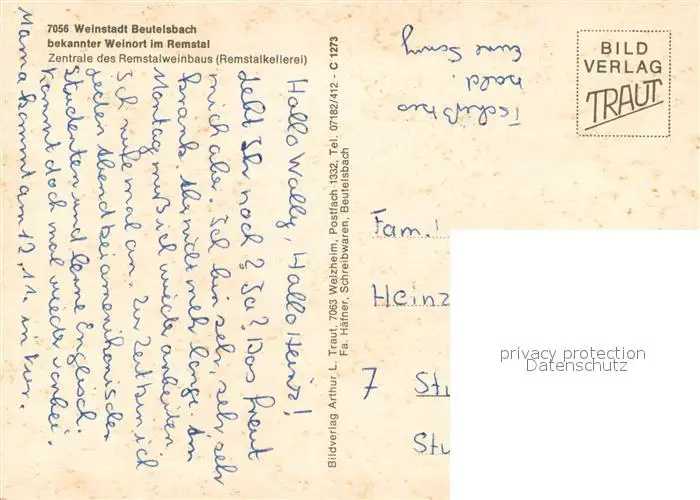 7056 Weinstadt Beutelsbach
bekannter Weinort im Remstal
Zentrale des Remstalweinbaus (Remstalkellerei)
Hallo Wally, Hallo Heinz!
Lebt Ihr noch? Ja? Das freut
mich aber. Ich bin sehr, sehr, sehr
krank. Aber nicht mehr lange. Am
Montag muß ich wieder arbeiten.
Ich rufe mal an. Zur Zeit bin ich
jeden Abend bei amerikanischen
Studenten und lerne Englisch.
Kommt doch mal wieder vorbei.
Mama kommt am 12.11. in Kur.
Tschüß bis
bald.
Eure
Bildverlag Arthur L. Traut, 7063 Welzheim, Postfach 1332, Tel. 07182/412 - C 1273
Fa. Häfner, Schreibwaren, Beutelsbach
BILD
VERLAG
TRAUT
Fam.
Heinz
7 Stu
Stu
privacy protection
Datenschutz